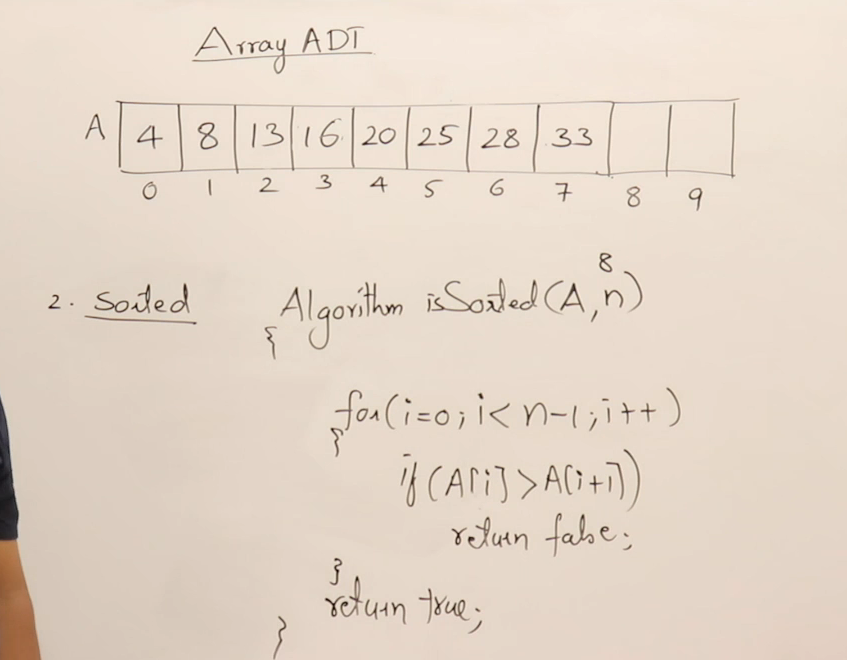 Array ADT
A 4 8 13 16 20 25 28 33
0 1 2 3 4 5 6 7 8 9
8
2. Sorted Algorithm isSorted(A,n)
{
for(i=0;i<n-1;i++)
{
if(A[i]>A[i+1])
return false;
}
return true;
}